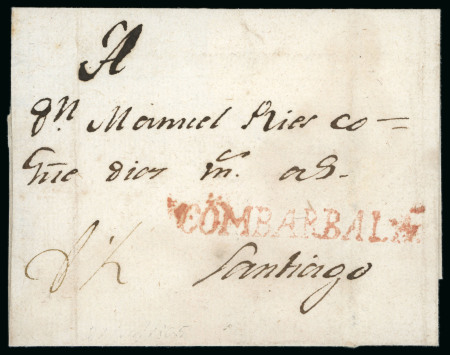 A
Dn Manuel Ries co=
gue dios ms. as.
COMBARBALA
Santiago